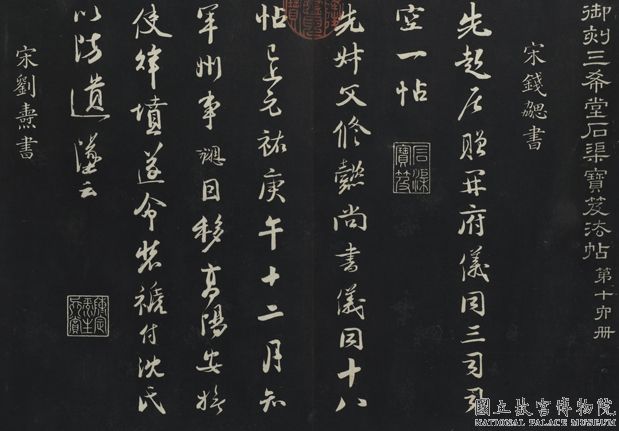 御刻三希堂石渠寶笈法帖 第十卯册
宋錢勰書
先起居贈開府儀同三司司
空一帖
先妣父脩懿尚書儀同十八
帖已上元祐庚午十二月知
軍州事勰自移高陽安撫
使焚墳遂令裝褫付沈氏
以防遺墜云
宋劉燾書
石渠寶笈
國立故宮博物院
NATIONAL PALACE MUSEUM